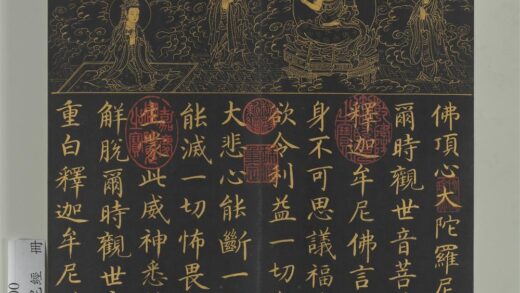 佛頂心大陀羅尼
爾時觀世音菩
釋迦牟尼佛言
身不可思議福
欲令利益一切
大悲心能斷一
能滅一切怖畏
生蒙此威神悉
解脫爾時觀世
重白釋迦牟尼
冊
經